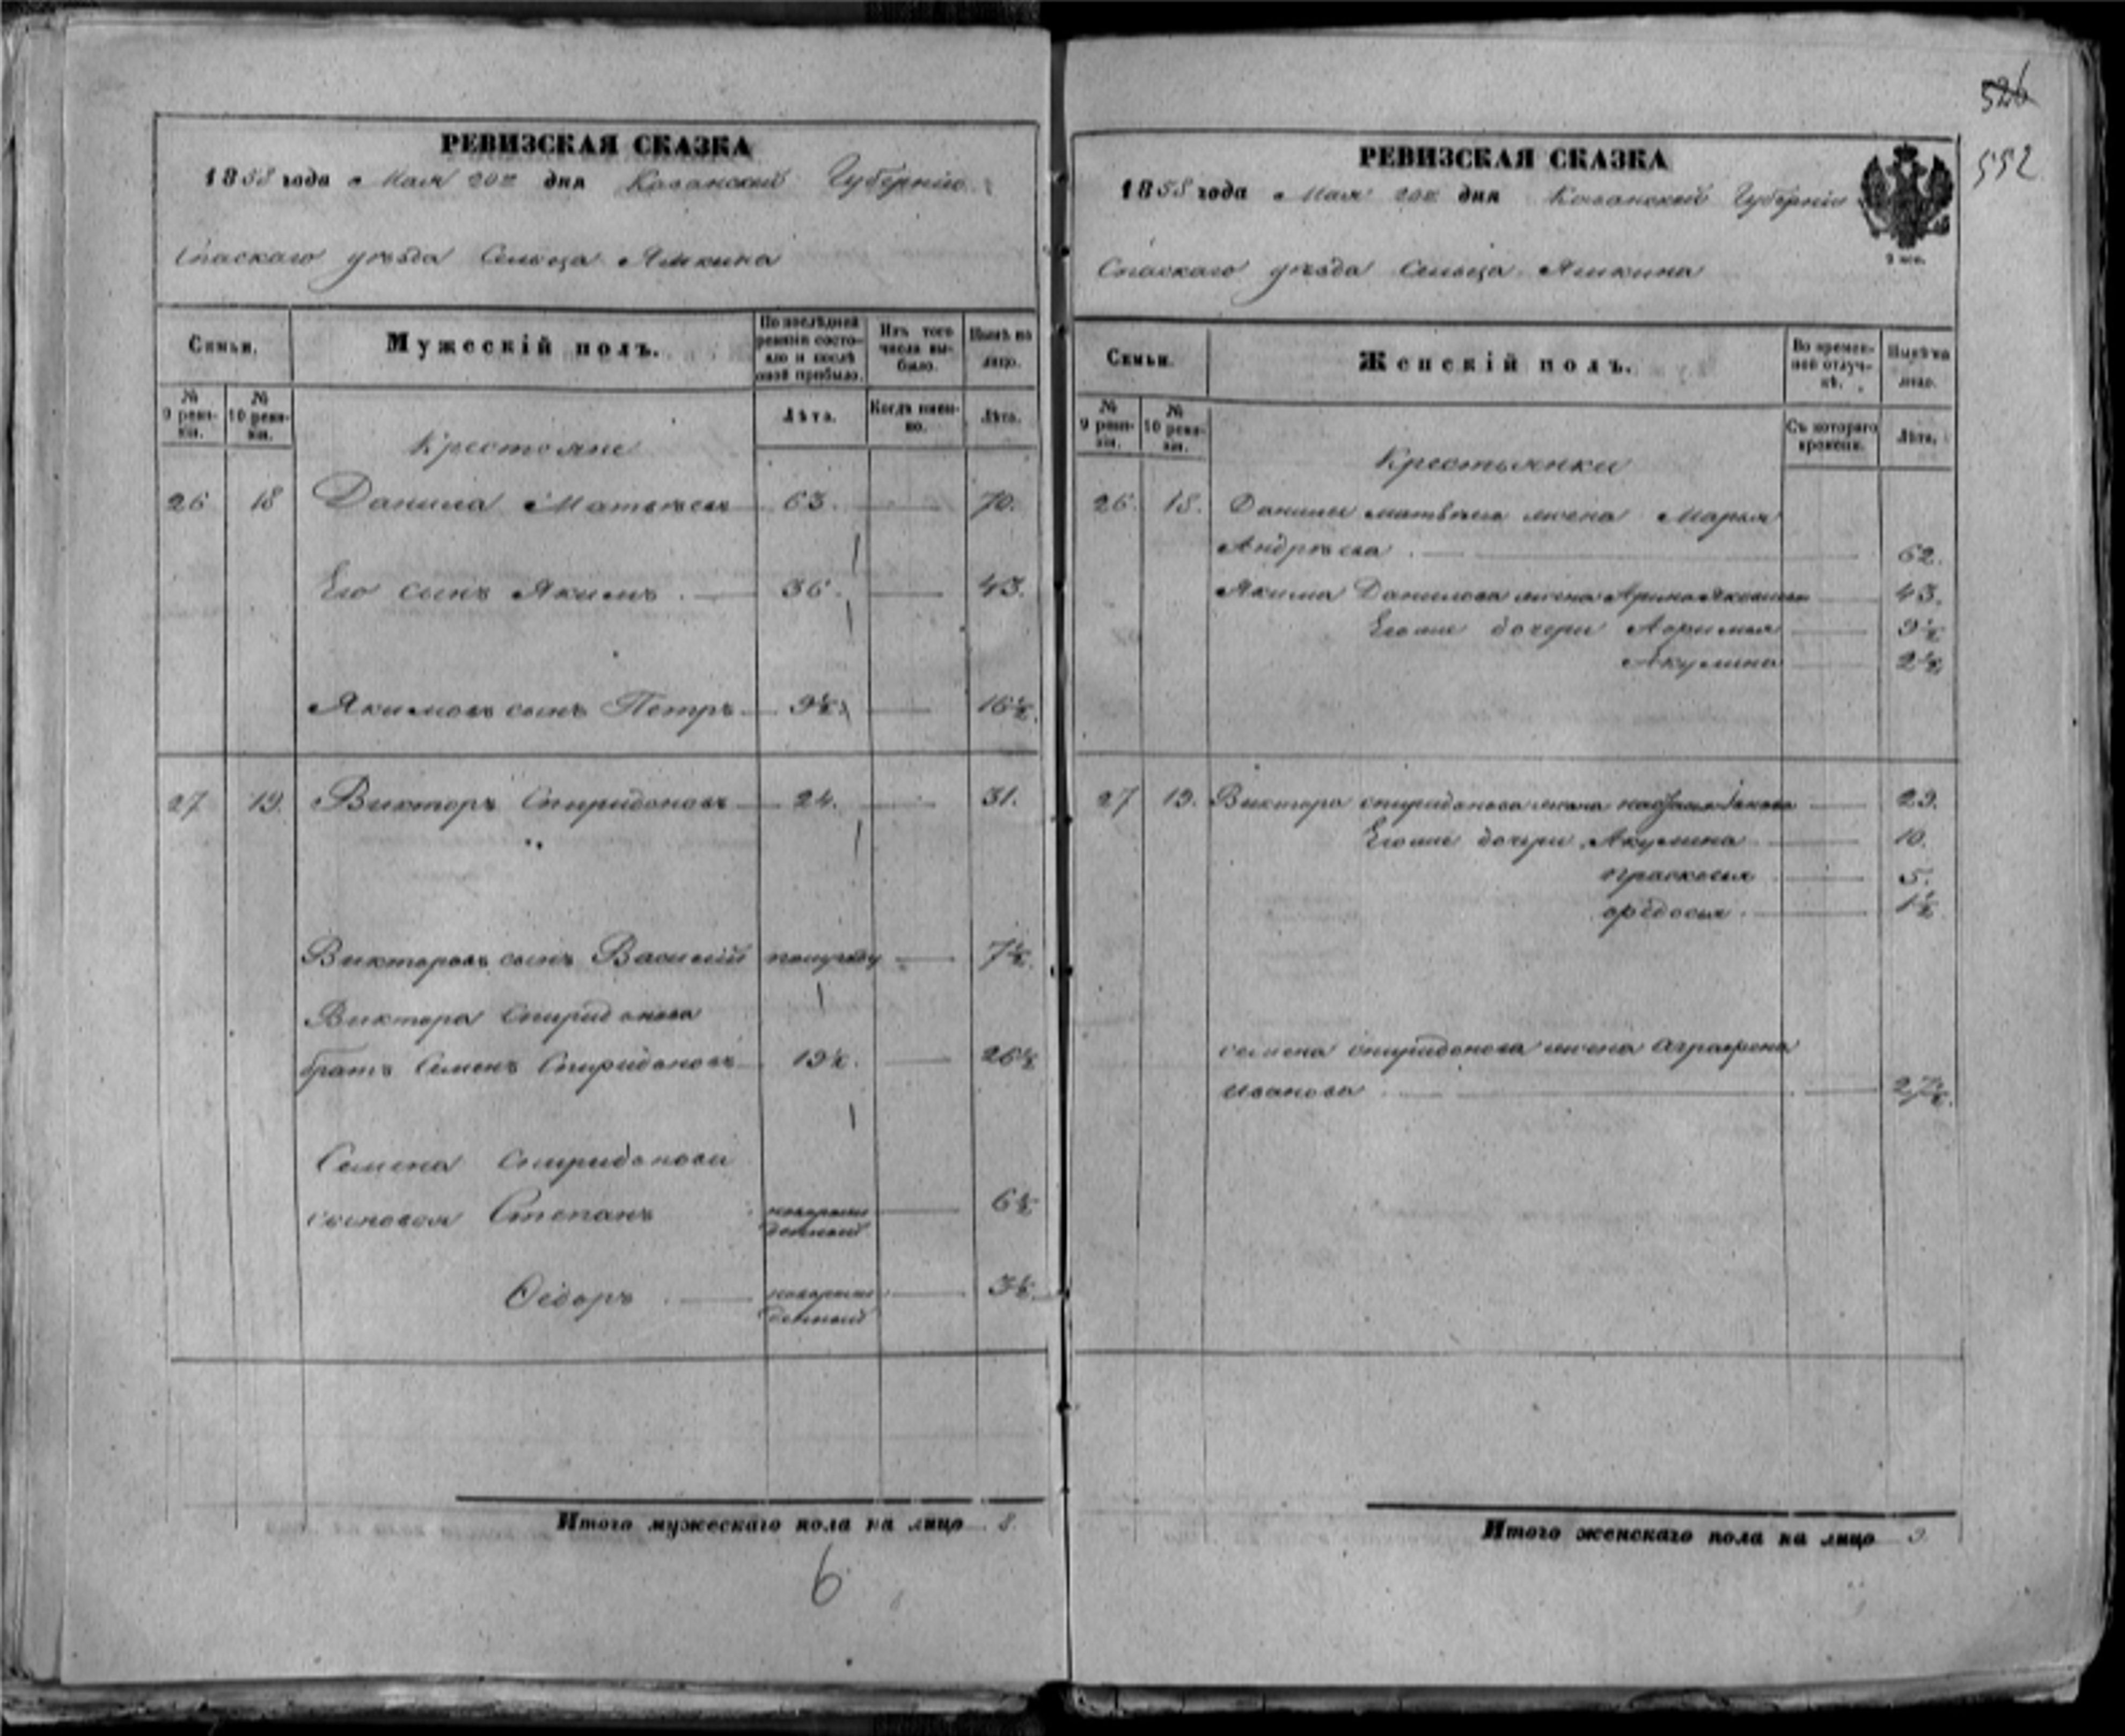 РЕВИЗСКАЯ СКАЗКА
1858 года Мая 20го дня Казанской Губерніи
Спаскаго уѣзда Сельца Ямкина
Семьи.
Мужескій полъ.
По послѣдней ревизіи состояло и послѣ оной прибыло.
Изъ того числа выбыло.
Нынѣ на лицо.
№ 9 ревизіи.
№ 10 ревизіи.
Лѣта.
Когда именно.
Лѣта.
Крестьяне
26 18 Данила Матвѣевъ 63. 70.
Его сынъ Якимъ 36. 43.
Якимовъ сынъ Петръ 9½ 16½.
27 19. Викторъ Спиридоновъ 24. 31.
Викторовъ сынъ Василій 7½.
Виктора Спиридонова
братъ Семенъ Спиридоновъ 19½. 26½
Семена Спиридонова
сыновья Степанъ новорож 6½
денный
Ѳедоръ новорож 3½
денный
Итого мужескаго пола на лицо 8.
6
526
552
РЕВИЗСКАЯ СКАЗКА
1858 года Мая 20го дня Казанской Губерніи
Спаскаго уѣзда Сельца Ямкина
Семьи.
Женскій полъ.
Во временной отлучкѣ.
Нынѣ на лицо.
№ 9 ревизіи.
№ 10 ревизіи.
Съ котораго времени.
Лѣта.
Крестьянки
26. 18. Данилы матвѣева жена Марья
Андрѣева 62.
Якима Данилова жена Арина Яковлева 43.
Егоже дочери 9½
Акулина 2½
27 19. Виктора спиридонова жена 29.
Егоже дочери Акулина 10.
Прасковья 5.
Федосья 1½
семена спиридонова жена аграфена
иванова 27½.
Итого женскаго пола на лицо 9.